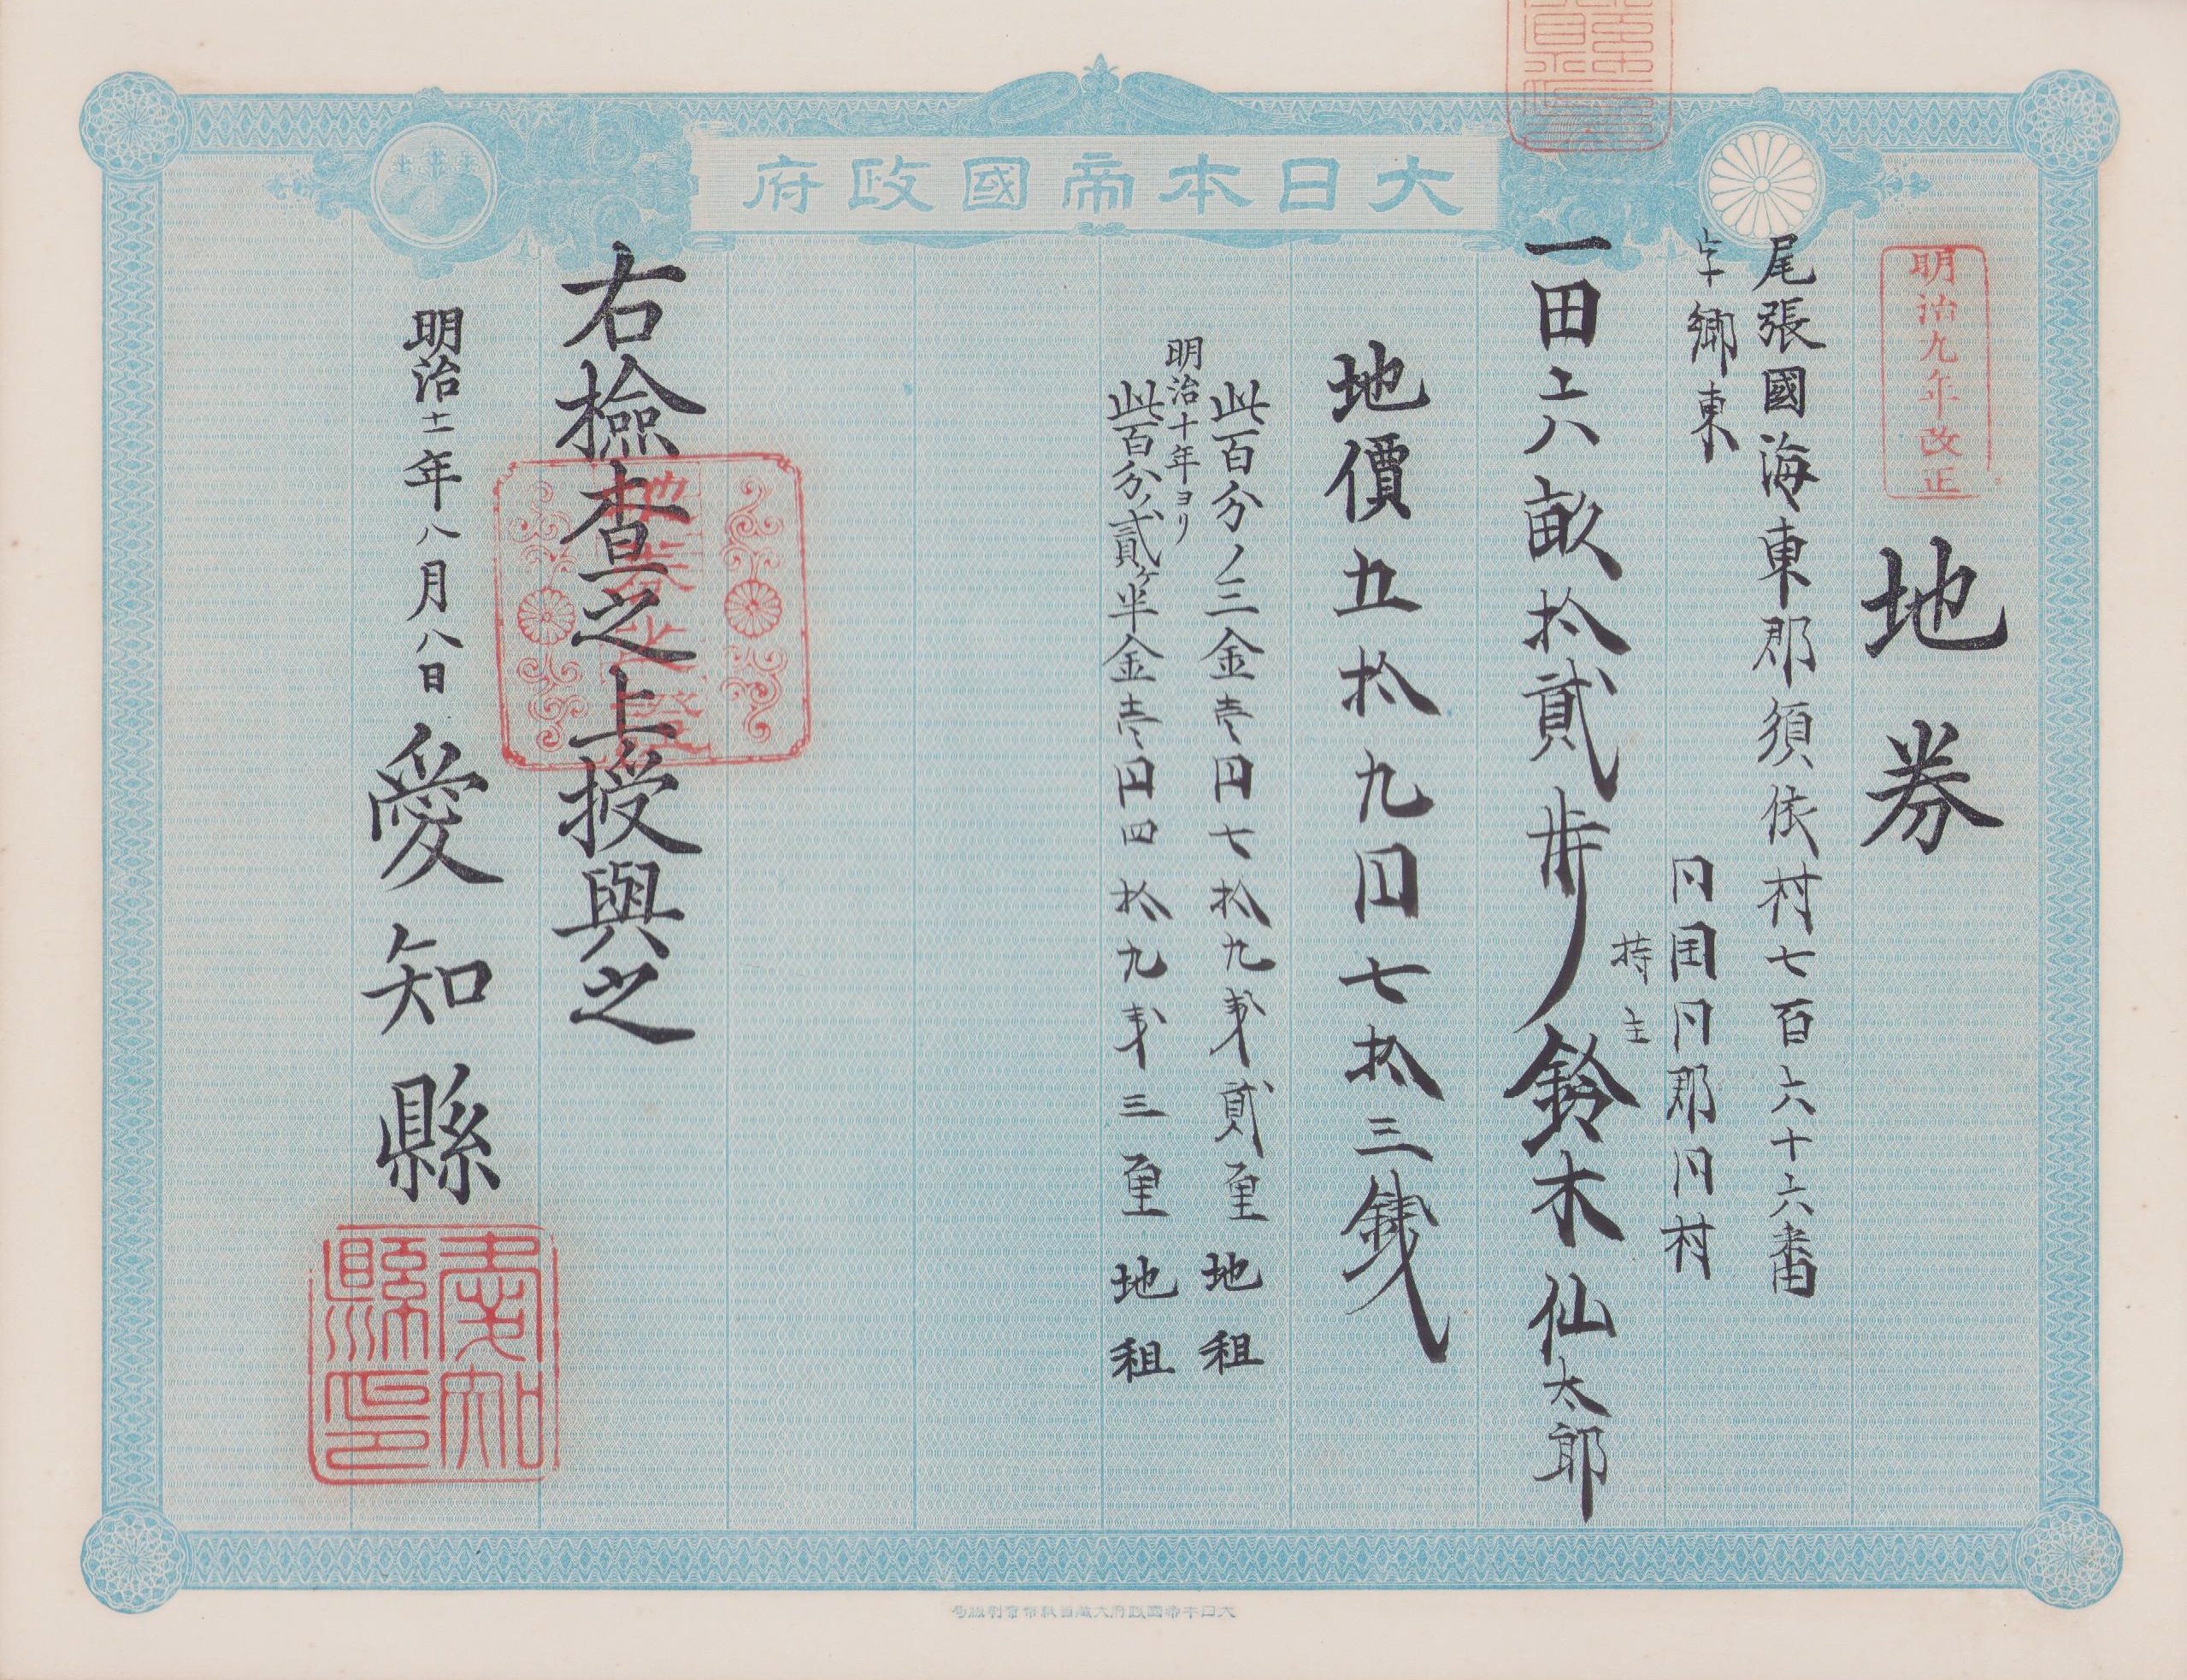 大日本帝國政府
明治九年改正
地券
尾張國海東郡須依村七百六十六番
字郷東
一田六畝拾貳歩
同國同郡同村
持主
鈴木仙太郎
地價五拾九円七拾三錢
此百分ノ三金壱円七拾九銭貳厘地租
明治十年ヨリ
此百分ノ貳ヶ半金壱円四拾九銭三厘地租
右檢査之上授與之
明治十一年八月八日
愛知縣
愛知縣印
大日本帝國政府大蔵省紙幣寮製造